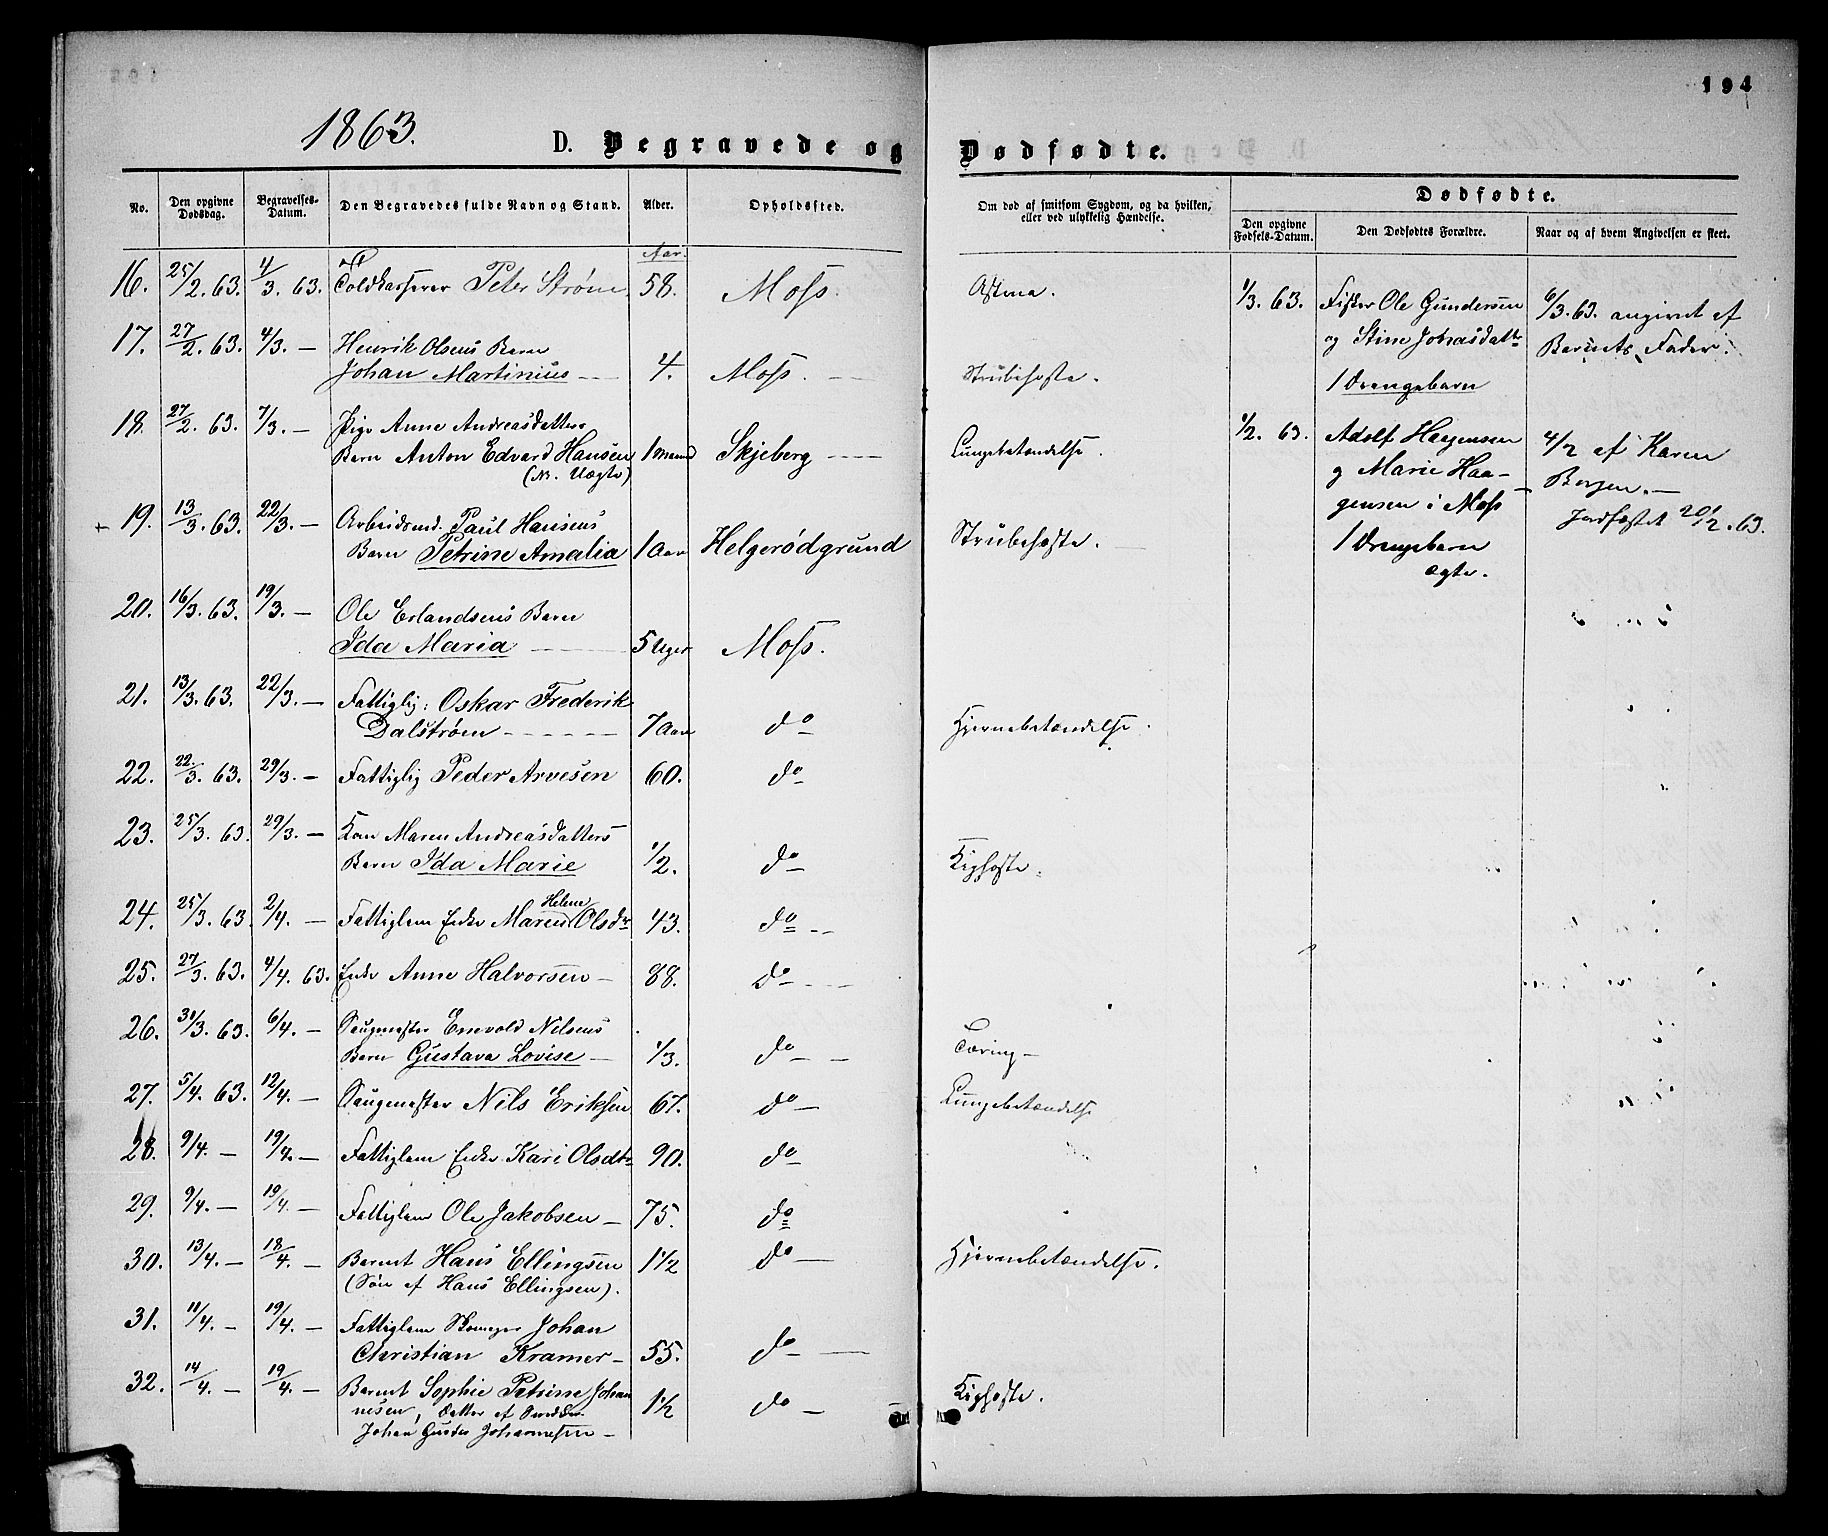 194
1863.
D. Begravede og Dødfødte.
No.
Den opgivne Dødsdag.
Begravelses-Datum.
Den Begravedes fulde Navn og Stand.
Alder.
Opholdssted.
Om død af smitsom Sygdom, og da hvilken, eller ved ulykkelig Hændelse.
Dødfødte.
Den opgivne Fødsels-Datum.
Den Dødfødtes Forældre.
Naar og af hvem Angivelsen er skeet.
Aar.
16. 25/2. 63. 4/3. 63. Toldkasserer Peter Strøm 58. Moss. Astma.
17. 27/2. 63. 4/3. — Henrik Olsens Barn
Johan Martinius — 4. Moss. — Strubehoste.
18. 27/2. 63. 7/3. — Pige Anne Andreasdatters
Barn Anton Edvard Hansen 1 Maaned Skjeberg — Lungebetændelse.
(N. Uægte)
+ 19. 13/3. 63. 22/3. — Arbeidsmd. Paul Hansens
Barn Petrine Amalia 1 Aar Helgerødgrund Strubehoste.
20. 16/3. 63. 19/3. — Ole Erlandsens Barn
Ida Maria — 5 Uger Moss.
21. 13/3. 63. 22/3. — Fattiglig: Oskar Frederik
Dalstrøm — 7 Aar do Hjernebetændelse.
22. 22/3. 63. 29/3. — Fattiglig Peder Arvesen 60. do
23. 25/3. 63. 29/3. — Kone Maren Andreasdatters
Barn Ida Marie 1/2. do Kighoste.
24. 25/3. 63. 2/4. — Fattiglem Enke Maren Helene Olsdr 43. do
25. 27/3. 63. 4/4. 63. Enke Anne Halvorsen — 88. Do
26. 31/3. 63. 6/4. — Saugmester Enevold Nilsens
Barn Gustava Lovise — 1/3. do Tæring —
27. 5/4. 63. 12/4. — Saugmester Nils Eriksen 67. do — Lungebetændelse
28. 9/4. — 19/4. — Fattiglem Enke Kari Olsdtr 90. do
29. 9/4. — 19/4. — Fattiglem Ole Jakobsen — 75. do
30. 13/4. — 18/4. — Barnet Hans Ellingsen 1 1/2 do — Hjernebetændelse.
(Søn af Hans Ellingsen).
31. 11/4. — 19/4. — Fattiglem Johan
Christian Kramer — 55. do —
32. 14/4. — 19/4. — Barnet Sophie Petrine Johan
nesen, Datter af
Johan Johannesen — 1 1/2 do — Kighoste.
1/3. 63. Fisker Ole Gundersen 6/3. 63. angivet af
og Stine Johasdattr Barnets Fader.
1 Drengebarn
1/2. 63. Adolf Haagensen 4/2 af Karen
og Marie Haa- Borgen. —
gensen i Moss Jordfæstet 20/2. 63.
1 Drengebarn
ægte.